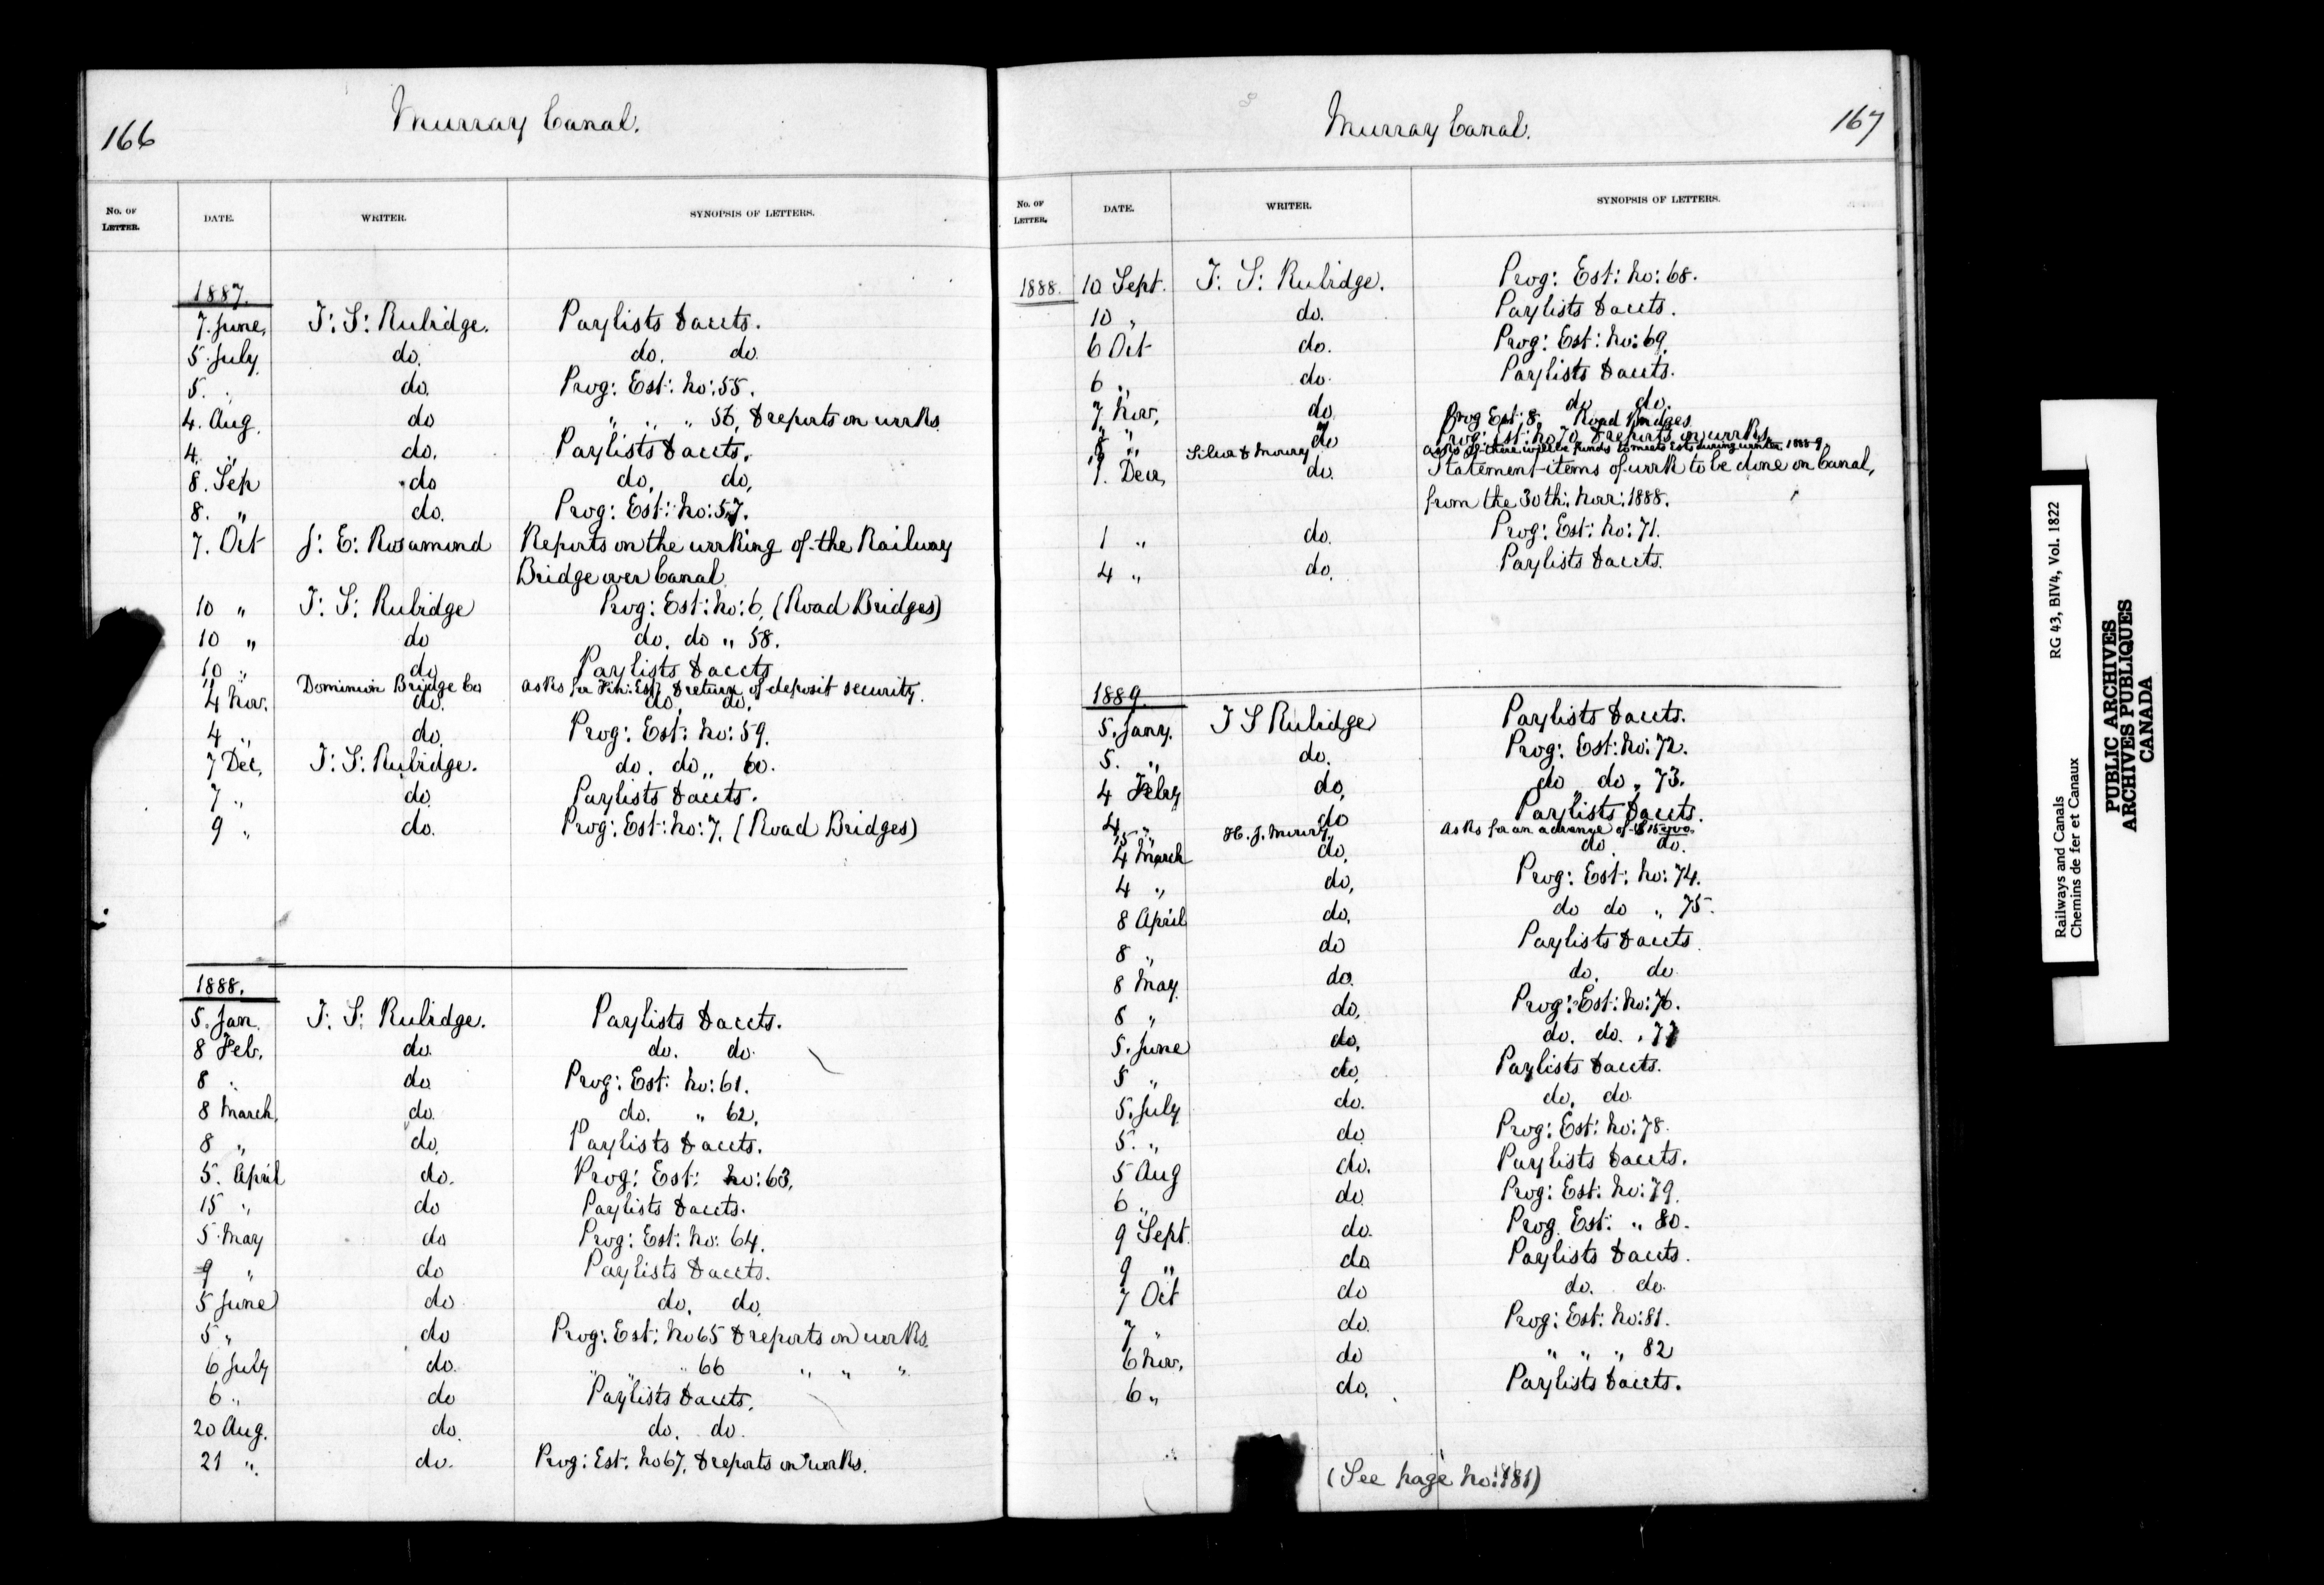 166
Murray Canal.
No. OF LETTER. DATE. WRITER. SYNOPSIS OF LETTERS.
1887.
7. June, T: S: Rubidge. Paylists & accts.
5. July do. do. do.
5. „ do. Prog: Est: No: 55.
4. Aug. do „ „ „ 56, & reports on works.
4. „ do. Paylists & accts.
8. Sep do do, do,
8. „ do. Prog: Est: No: 57.
7. Oct J: E: Rosamond Reports on the working of the Railway
Bridge over Canal.
10 „ T: S: Rubidge Prog: Est: No: 6, (Road Bridges)
10 „ do do. do „ 58.
10 „ do Paylists & accts
„ Dominion Bridge Co asks for Fin: Est, & return of deposit security.
4 Nov. do. do, do,
4 „ do. Prog: Est: No: 59.
7 Dec, T: S: Rubidge. do. do „ 60.
7 „ do. Paylists & accts.
9 „ do. Prog: Est: No: 7, (Road Bridges)
1888.
5. Jan. T: S: Rubidge. Paylists & accts.
8 Feb. do. do. do.
8 „ do. Prog: Est: No: 61.
8 March, do. do. „ 62,
8 „ do, Paylists & accts.
5. April do. Prog: Est: No: 63,
15 „ do Paylists & accts.
5 May do Prog: Est: No: 64.
9 „ do Paylists & accts.
5 June do do, do,
5 „ do Prog: Est: No 65 & reports on works.
6 July do. „ „ „ 66 „ „ „
6 „ do Paylists & accts,
20 Aug. do. do. do.
21 „ do. Prog: Est: No 67, & reports on works.
167
Murray Canal.
No. OF LETTER. DATE. WRITER. SYNOPSIS OF LETTERS.
1888. 10 Sept. T: S: Rubidge. Prog: Est: No: 68.
10 „ do. Paylists & accts.
6 Oct do. Prog: Est: No: 69.
6 „ do. Paylists & accts.
7 Nov, do. do do.
„ „ „ Prog Est: 8, Road Bridges
„ do Prog: Est: No 70, & reports on works
„ Silcox & Mowry asks if there will be funds to meet Ests during winter 1888-9.
1. Dec, do. Statement items of work to be done on Canal,
from the 30th: Novr: 1888.
1 „ do. Prog: Est: No: 71.
4 „ do. Paylists & accts.
1889.
5. Jany. T S Rubidge Paylists & accts.
5. „ do. Prog: Est: No: 72.
4 Feby do, do „ do „ 73.
4 „ do Paylists & accts.
15 „ H. J. Mowry asks for an advance of $15000.
4 March do, do do.
4 „ do, Prog: Est: No: 74.
8 April do, do do „ 75.
8 „ do Paylists & accts.
8 May. do. do. do.
8 „ do, Prog: Est: No: 76.
5. June do, do. do. „ 77
5 „ do, Paylists & accts.
5. July do. do. do.
5. „ do. Prog: Est: No: 78.
5 Aug do. Paylists & accts.
6 „ do. Prog: Est: No: 79.
9 Sept. do. Prog. Est: „ 80.
9 „ do. Paylists & accts.
7 Oct do do. do.
7 „ do. Prog: Est: No: 81.
6 Nov, do „ „ „ 82
6 „ do. Paylists & accts.
(See page No: 181)
Railways and Canals
Chemins de fer et Canaux
RG 43, BIV4, Vol. 1822
PUBLIC ARCHIVES
ARCHIVES PUBLIQUES
CANADA